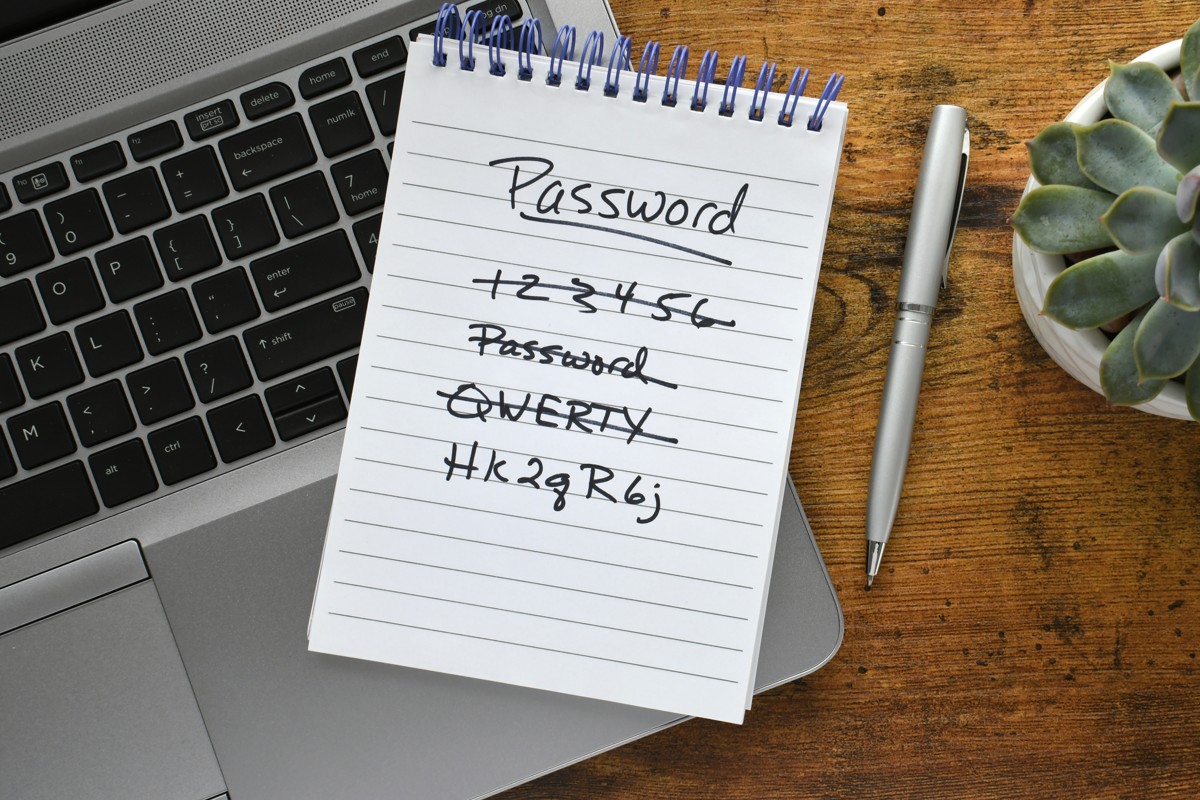 Password
123456
Password
QWERTY
Hk2qR6j
pg dn
end
home
delete
insert
prt sc
f12
f11
f10
numlk
/
backspace
+
=
_
-
)
0
(
9
7
home
|
\
}
]
{
[
P
O
4
enter
"
'
:
;
L
K
pause
shift
?
/
>
.
<
,
M
ctrl
alt
<